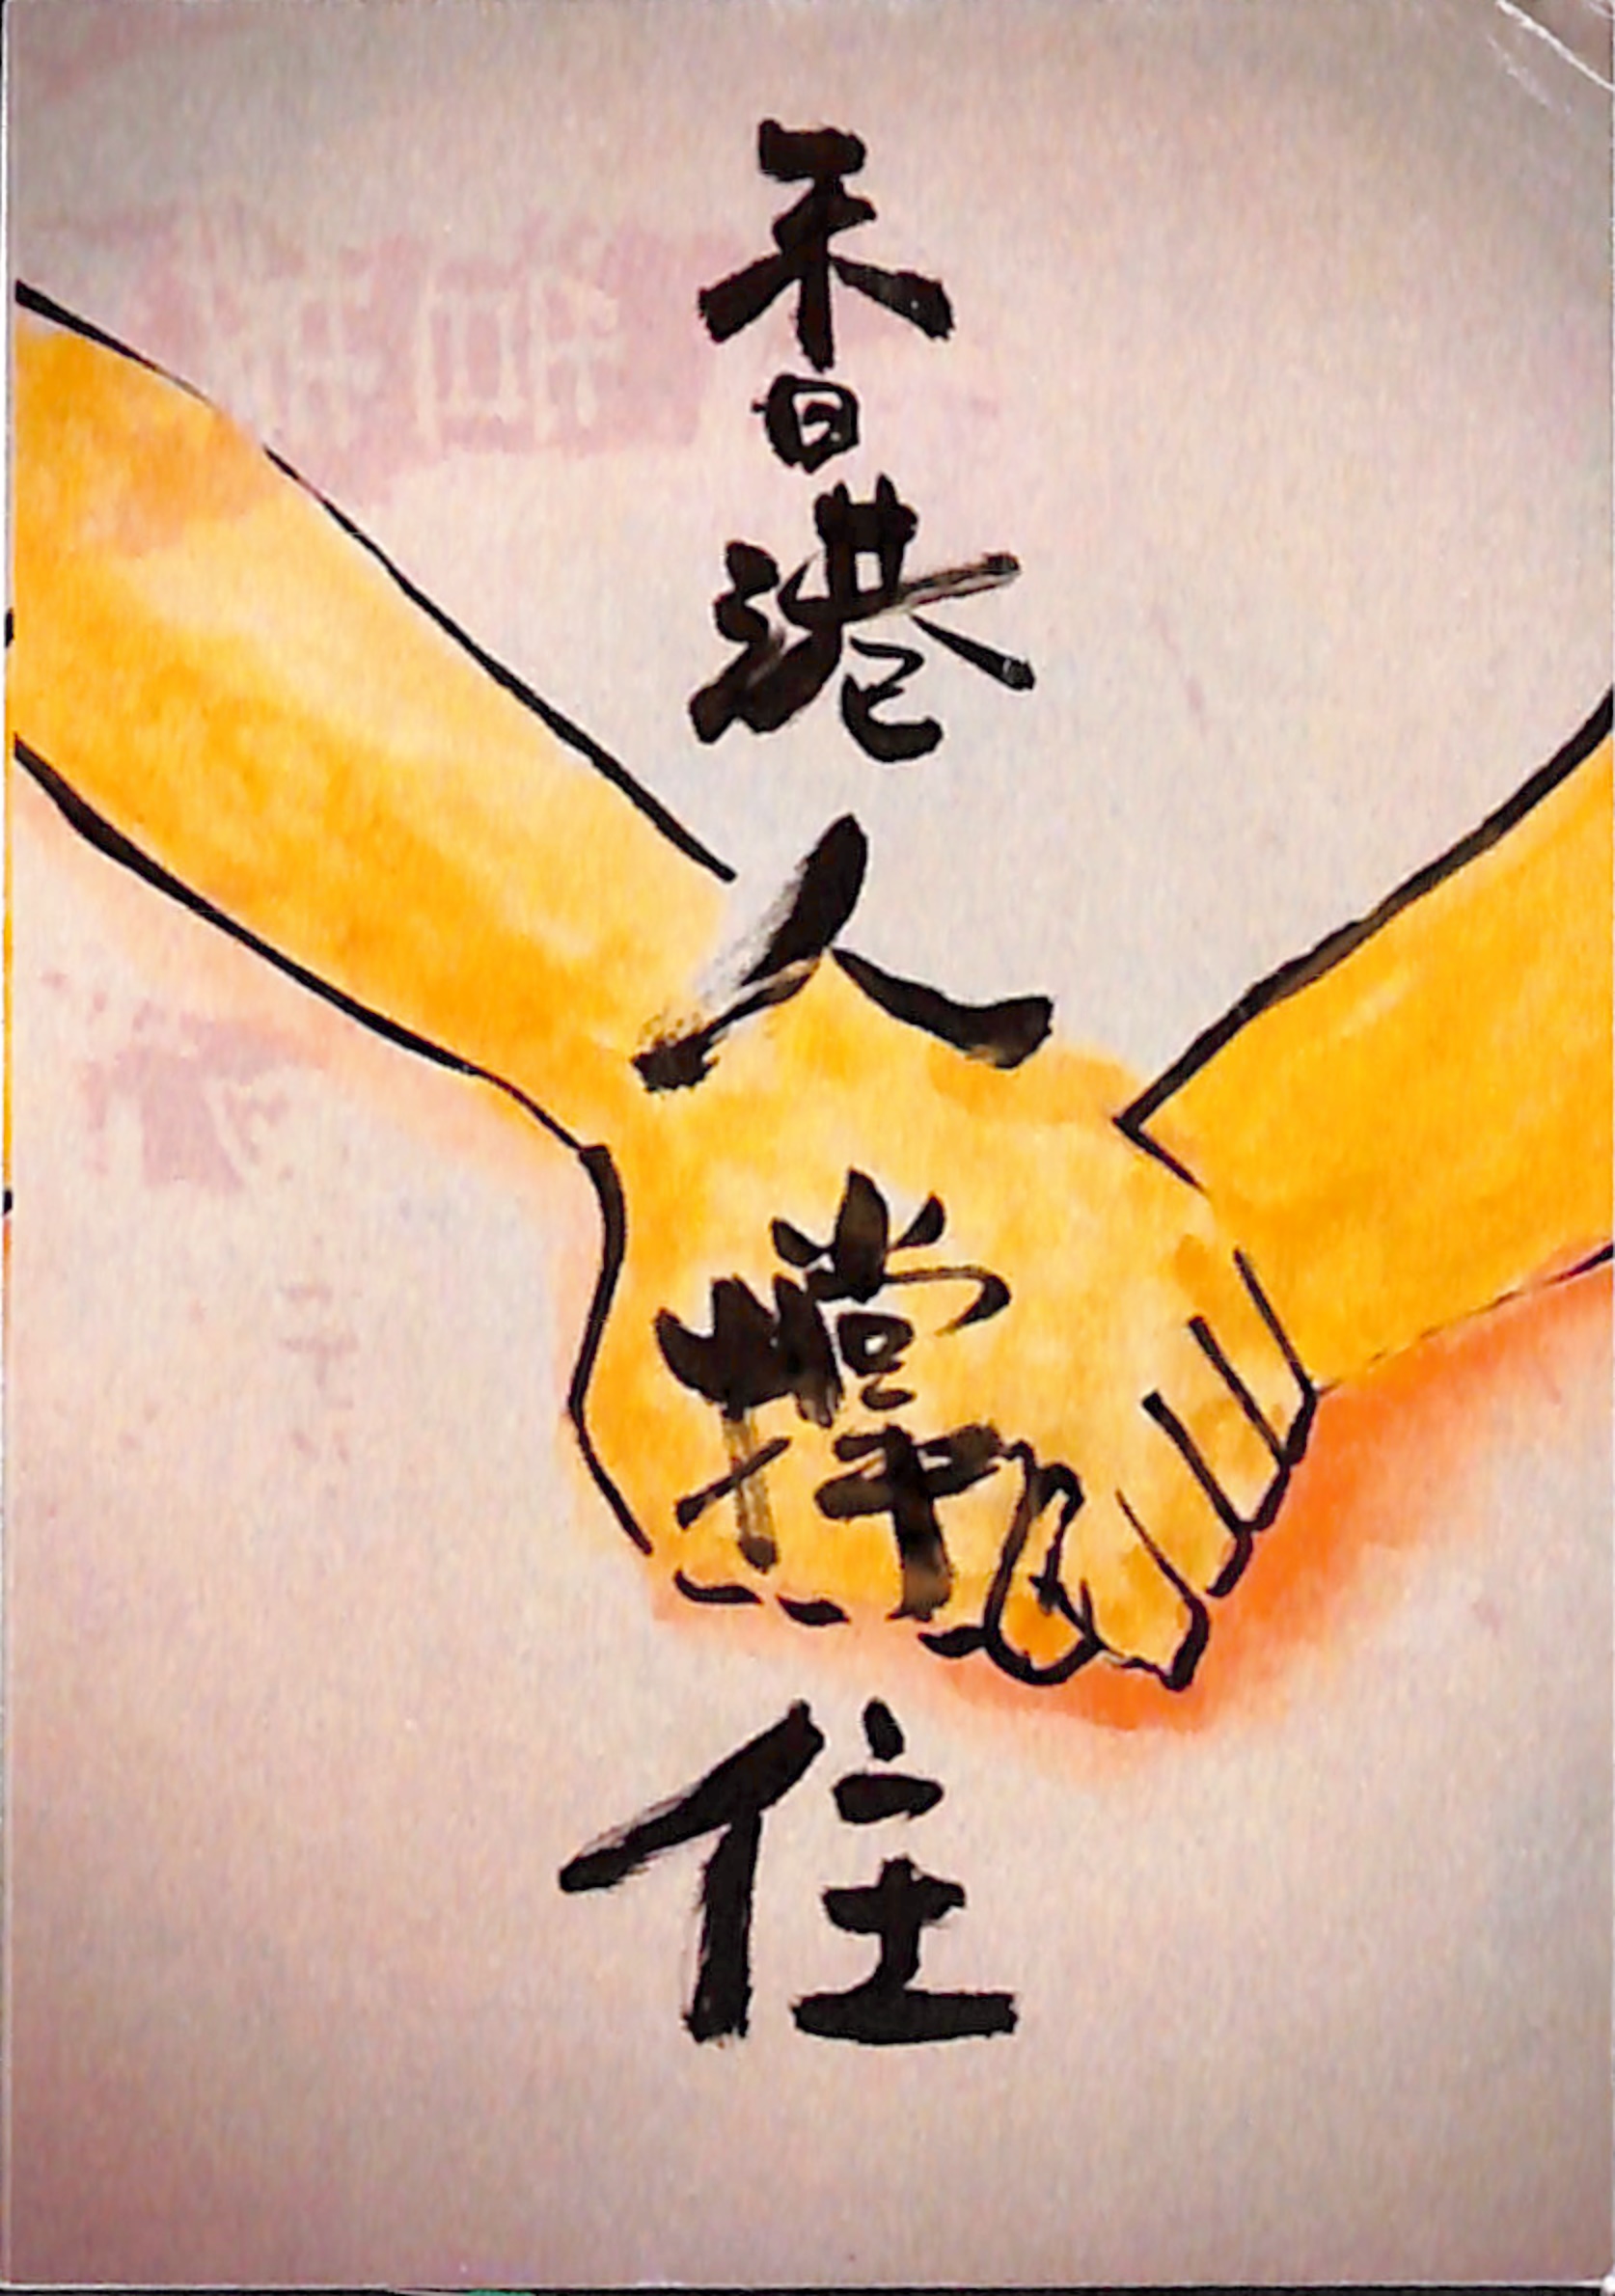 香港人撐住